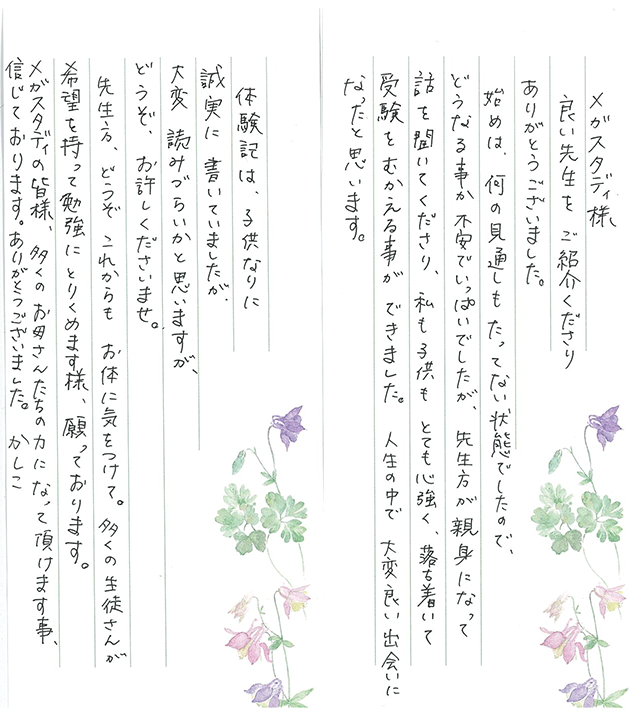 メガスタディ様
良い先生を ご紹介くださり
ありがとうございました。
始めは、何の見通しも たってない状態でしたので、
どうなる事か不安でいっぱいでしたが、先生方が親身になって
話を聞いてくださり、私も子供も とても心強く、落ち着いて
受験をむかえる事が できました。人生の中で 大変良い出会いに
なったと思います。
体験記は、子供なりに
誠実に 書いていましたが、
大変 読みづらいかと思いますが、
どうぞ、お許しくださいませ。
先生方、どうぞ これからも お体に気をつけて。多くの生徒さんが
希望を持って勉強にとりくめます様、願っております。
メガスタディの皆様、多くのお母さんたちの力になって頂けます事、
信じております。ありがとうございました。 かしこ